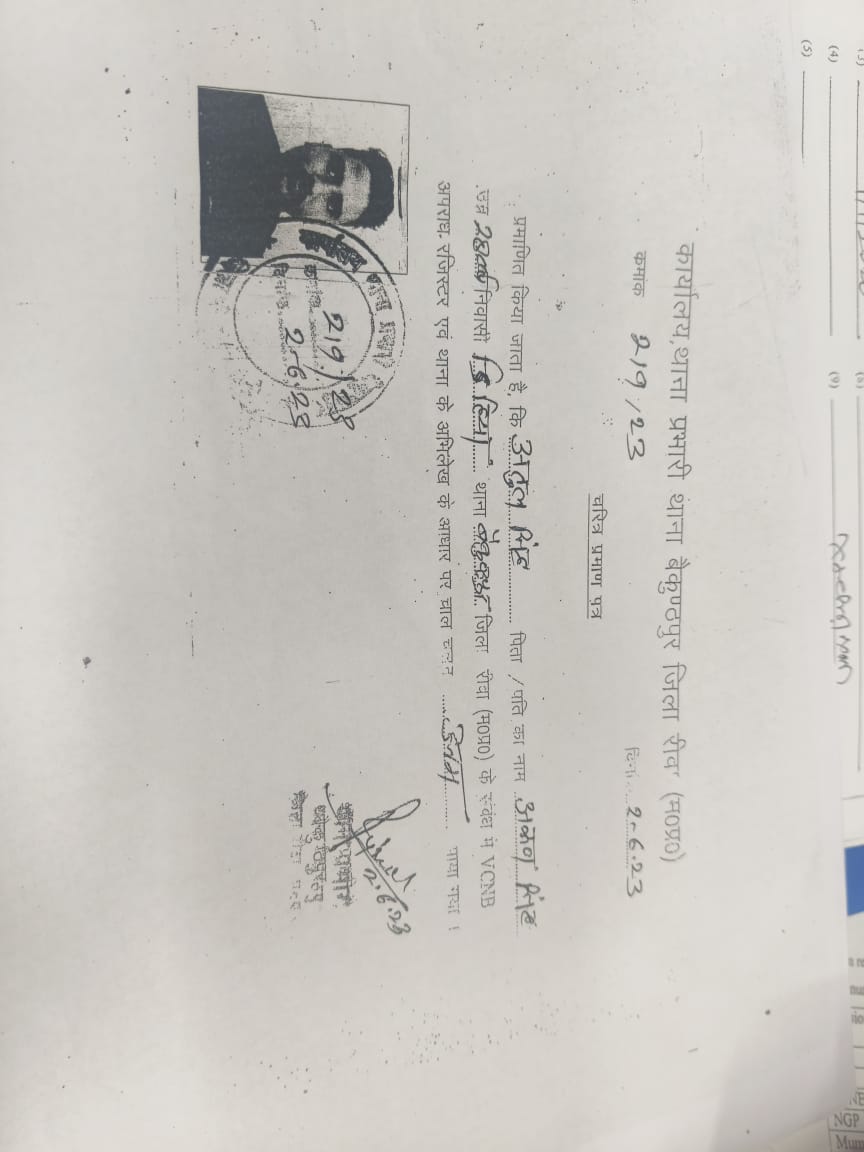 कार्यालय थाना प्रभारी थाना बैकुण्ठपुर जिला रीवा (म०प्र०)
कमाक 219/23 दिनां... 2.6.23
चरित्र प्रमाण पत्र
प्रमाणित किया जाता है, कि अतुल सिंह पिता / पति का नाम अरूण सिंह
उम्र 28 वर्ष निवासी थाना बैकुण्ठपुर जिला रीवा (म०प्र०) के संबंध मे VCNB
अपराध रजिस्टर एवं थाना के अभिलेख के आधार पर चाल चलन पाया गया ।
2.6.23
थाना प्रभारी
219/23
2.6.23
(4)
(5)
(9)
NGP